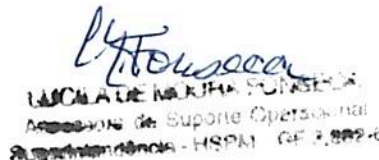 LMFonseca
LUCILA DE MOURA FONSECA
Assessora de Suporte Operacional
Superintendência - HSPM